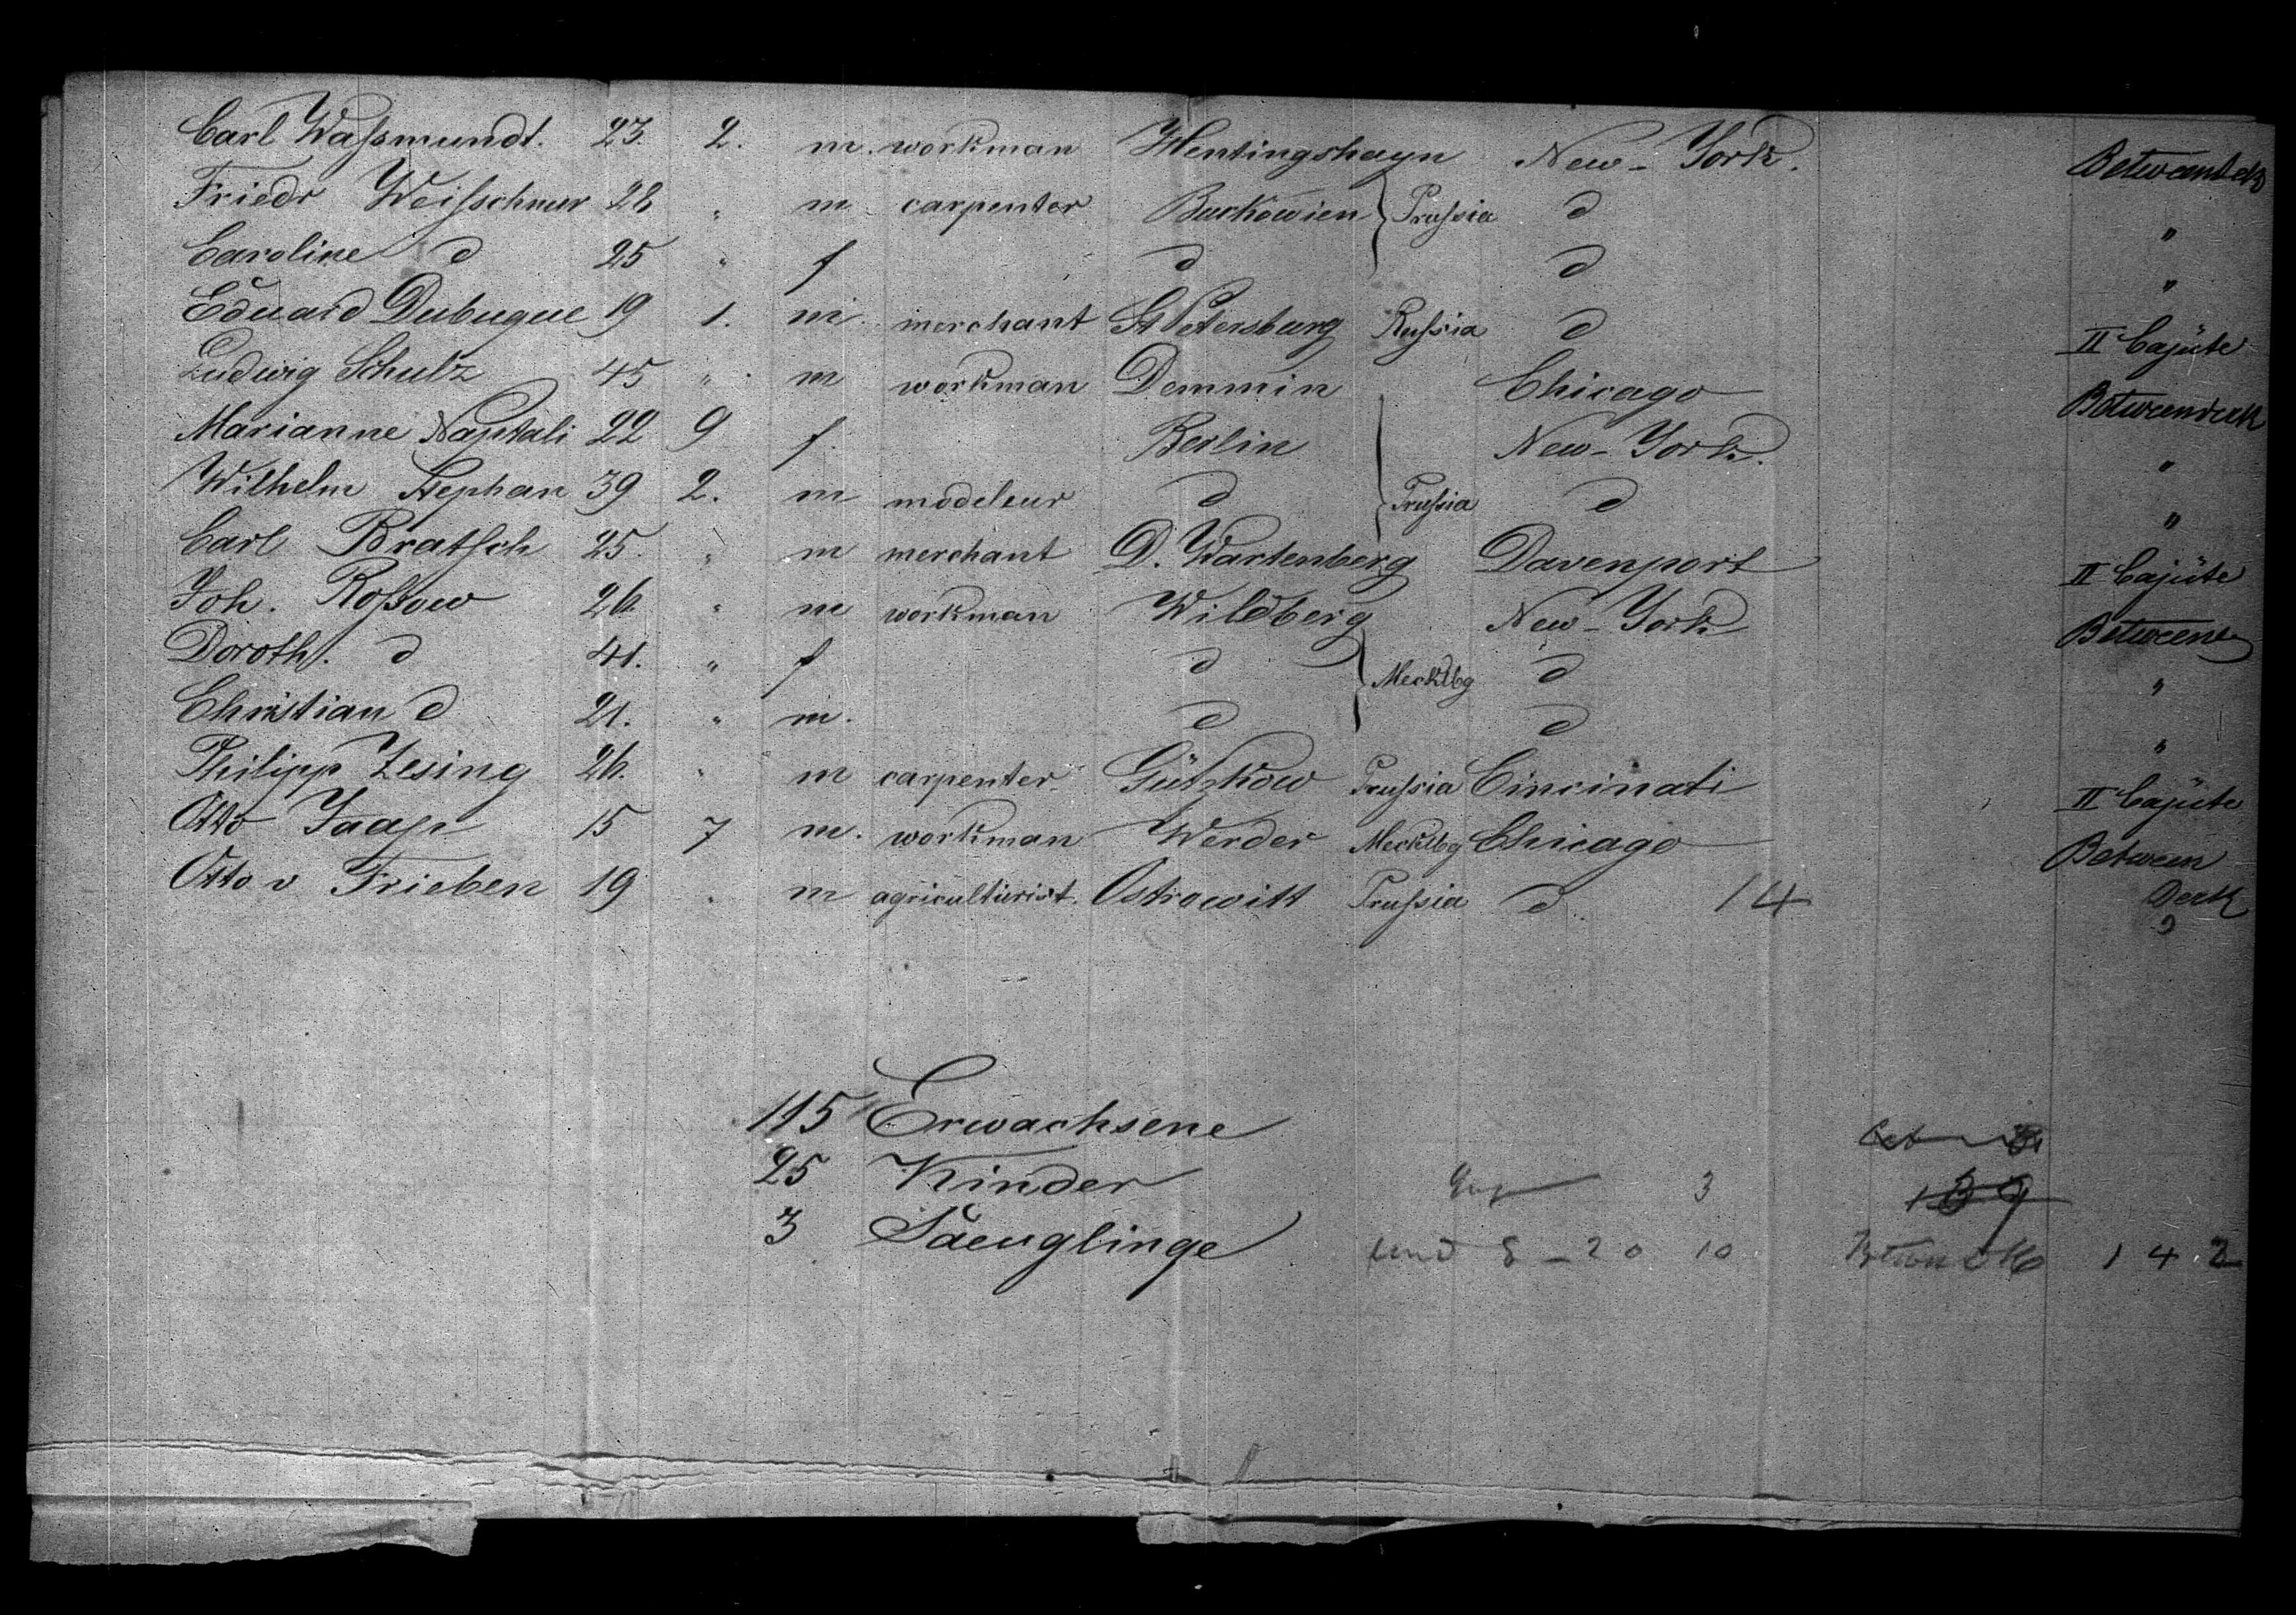 Carl Waßmundt. 23. 2. m. workman Wentingshagn New-York. Betweendek
Friedr Weißchnur 28 " m carpenter Burkowien } Prussia d "
Caroline d 25 " f d d "
Eduard Dubugue 19 1. m. merchant St Petersburg Russia d II Cajüte
Ludwig Schulz 45 " m workman Demmin Chicago Betweendeck
Marianne Naptali 22 9 f. Berlin New-York. "
Wilhelm Stephan 39 2. m modeleur d { Prussia d "
Carl Bratsch 25. " m merchant D. Wartenberg Davenport II Cajüte
Joh. Roßow 26. " m workman Wildberg New-York Betweene
Doroth. d 41. " f d { Mecklbg d "
Christian d 21. " m. d d "
Philipp Zesing 26. " m carpenter Gützkow Prussia Cincinati II Cajüte
Otto Jaap 15 7 m. workman Werder Mecklbg Chicago Between
Otto v Frieben 19 " m agriculturist. Ostrowitt Prussia d 14 Deck
115 Erwachsene
25 Kinder 3
3 Saeuglinge 8-20 10 142